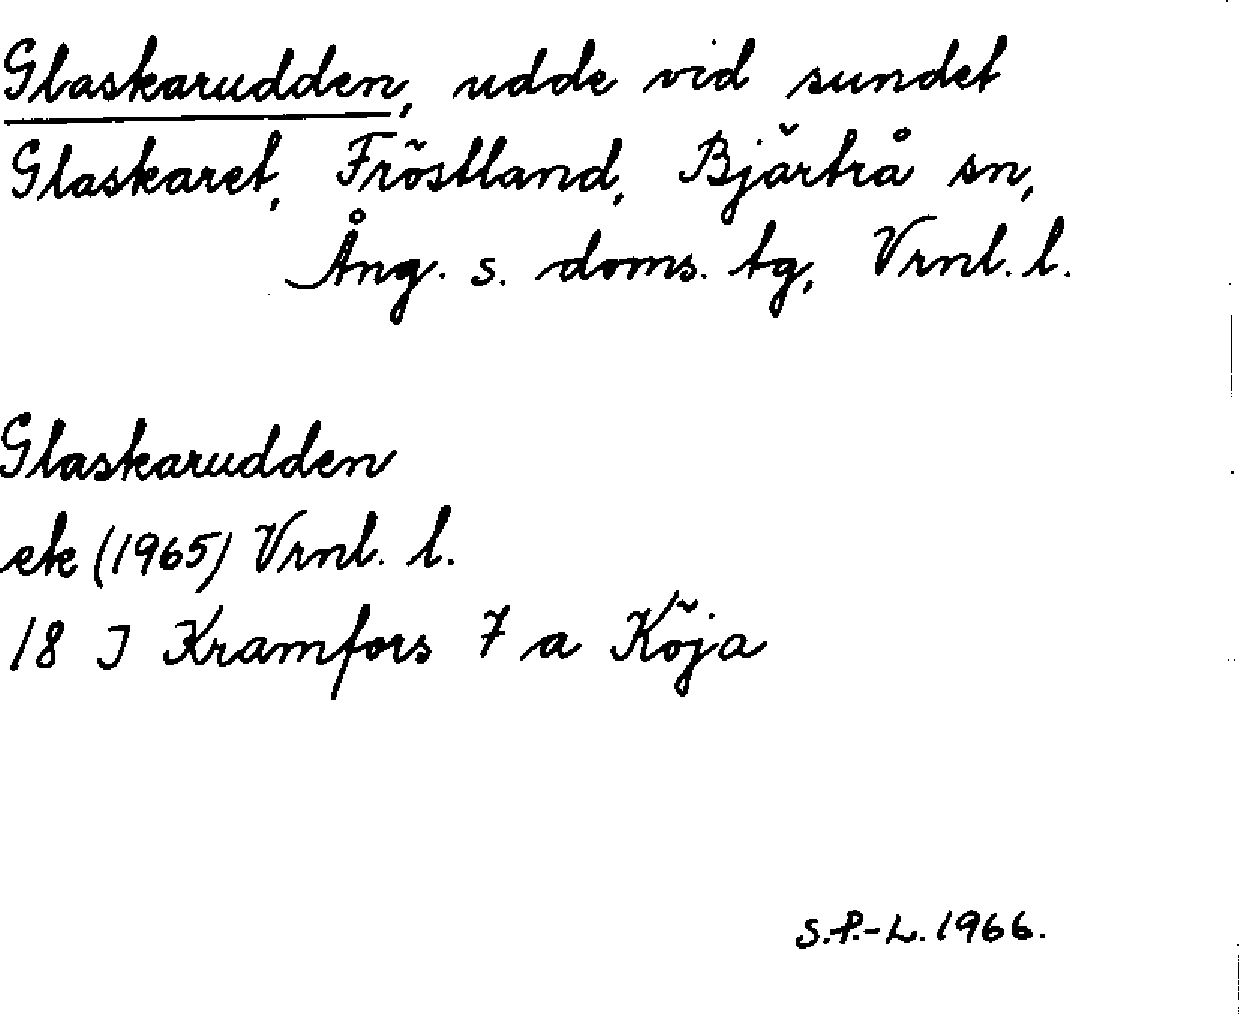 Glaskarudden, udde vid sundet
Glaskaret, Fröstland, Bjärtrå sn,
Ång. s. doms. tg, Vrnl. l.
Glaskarudden
ek (1965) Vrnl. l.
18 I Kramfors 7 a Köja
S.P.-L. 1966.